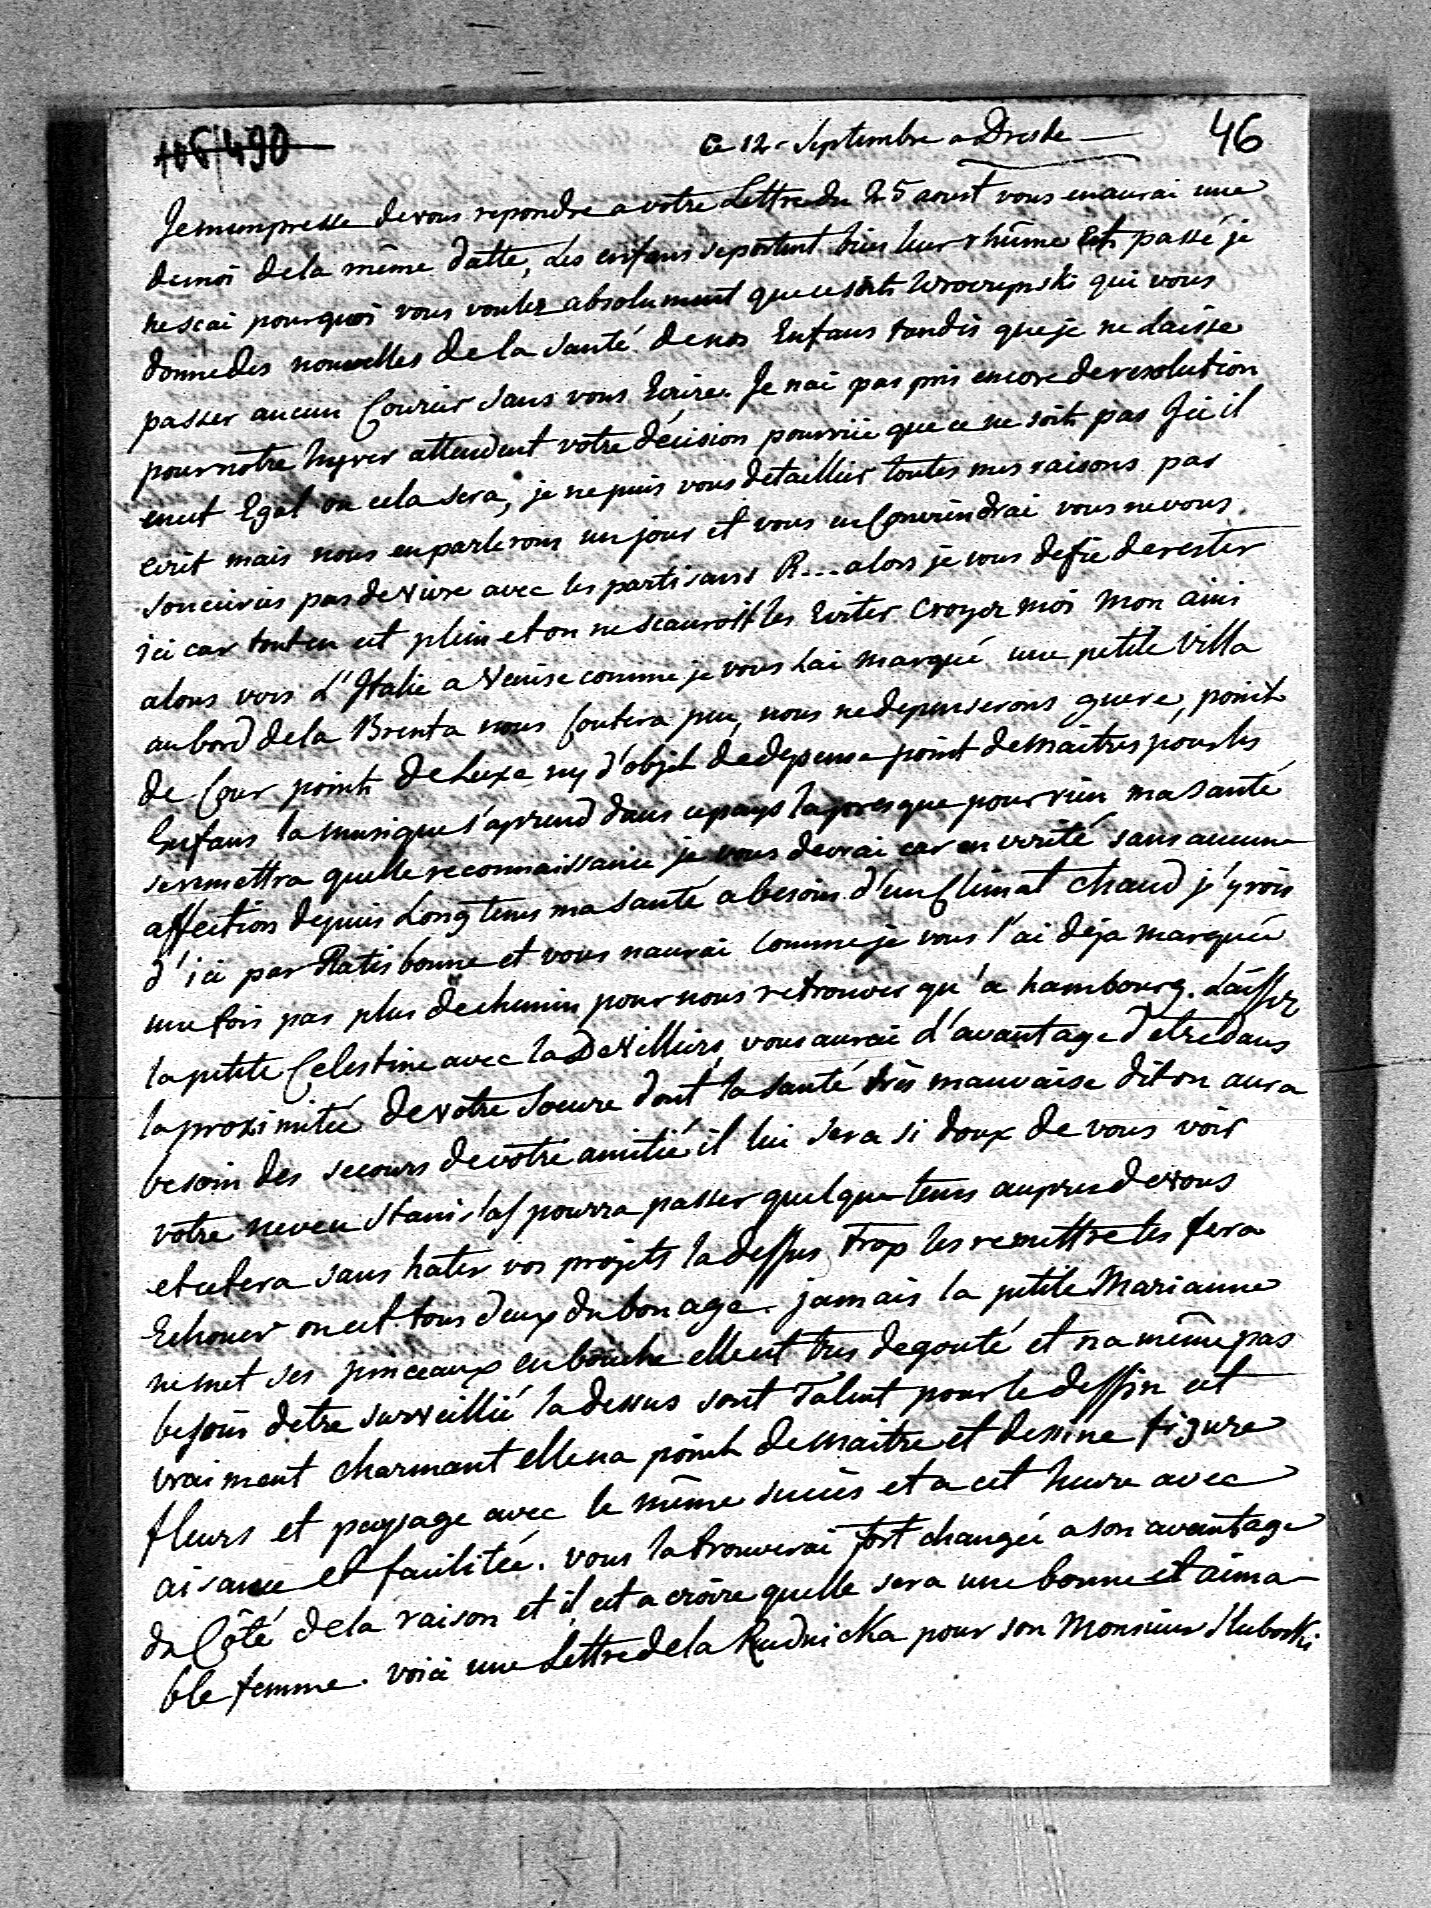 106/490
Ce 12 Septembre a Dresde
46
Je mempresse de vous repondre a votre Lettre du 25 aoust vous en aurai une
de moi de la même datte, les enfans se portent bien leur rhûme est passé je
ne scai pourquoi vous voulez absolument que ce soit qui vous
donne des nouvelles de la santé de nos Enfans tandis que je ne laisse
passer aucun Courier sans vous Ecrire. Je nai pas pris encore de resolution
pour notre hyver attendent votre décision pourvûe que ce ne soit pas Ici il
m'est Egal ou cela sera, je ne puis vous detaillier toutes mes raisons par
ecrit mais nous en parlerons un jour et vous en Conviendrai vous ne vous
souciriés pas de vivre avec les partisans R... alors je vous defie de rester
ici car tout en est plein et on ne scauroit les Eviter croyez moi mon ami
alons vers L'Italie a Venise comme je vous Lai marqué une petite villa
au bord de la Brenta nous Coutera peu, nous ne depenserons guere, point
de Cour point de Luxe ny d'objet de depense point de Maitres pour les
Enfans la musique s'aprend dans ce pays la presque pour rien ma santé
se remettra quelle reconnaissance je vous devrai car en verité sans aucune
affection depuis Longtems ma santé a besoin d'un Climat chaud j'y irois
d'ici par Ratisbonne et vous naurai Comme je vous l'ai déja marquée
une fois pas plus de chemin pour nous retrouver qu'a hambourg. Laissez
la petite Celestine avec la Devilliers vous aurai d'avantage d'etre dans
la proximitée de votre Soeure dont la santé très mauvaise dit on aura
besoin des secours de votre amitié il lui sera si doux de vous voir
votre neveu Stanislas pourra passer quelque tems aupres de vous
et cetera sans hater vos projets la dessus trop les remettre les fera
Echouer on est tous deux du bon age. jamais la petite Marianne
ne met ses pinceaux en bouche elle est tres degouté et na même pas
besoin detre surveillié la dessus sont Talent pour le dessin est
vraiment charmant elle na point de Maitre et dessine figure
fleurs et paysage avec le même succès et a cet heure avec
aisance et facilitée. vous la trouverai fort changée a son avantage
du Côté de la raison et il est a croire quelle sera une bonne et aima-
ble femme. voici une Lettre de la Rudnicka pour son Monsieur